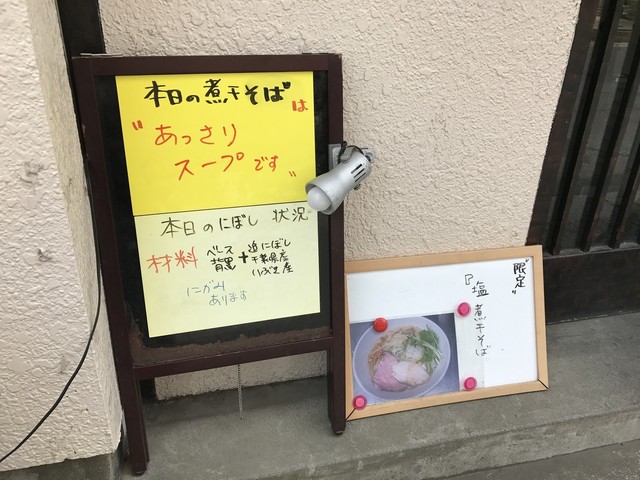 本日の煮干そばは
"あっさり
スープです"
本日のにぼし 状況
材料 ベース 背黒 + 追にぼし 千葉県産
にがみ
あります
"限定"
『塩 煮干そば